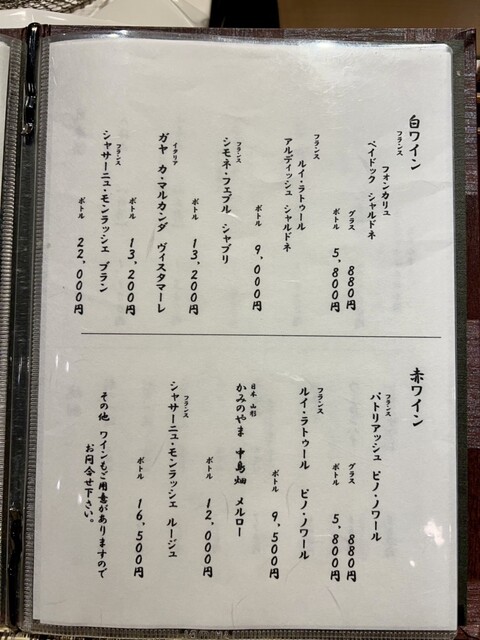 白ワイン
フランス
フォンカリュ
ペイドック シャルドネ
グラス 880円
ボトル 5,800円
フランス
ルイ・ラトゥール
アルディッシュ シャルドネ
ボトル 9,000円
フランス
シモネ・フェブル シャブリ
ボトル 13,200円
イタリア
ガヤ カ・マルカンダ ヴィスタマーレ
ボトル 13,200円
フランス
シャサーニュ・モンラッシェ ブラン
ボトル 22,000円
赤ワイン
フランス
パトリアッシュ ピノ・ノワール
グラス 880円
ボトル 5,800円
フランス
ルイ・ラトゥール ピノ・ノワール
ボトル 9,500円
日本 山形
かみのやま 中島畑 メルロー
ボトル 12,000円
フランス
シャサーニュ・モンラッシェ ルージュ
ボトル 16,500円
その他 ワインもご用意がありますので
お問合せ下さい。